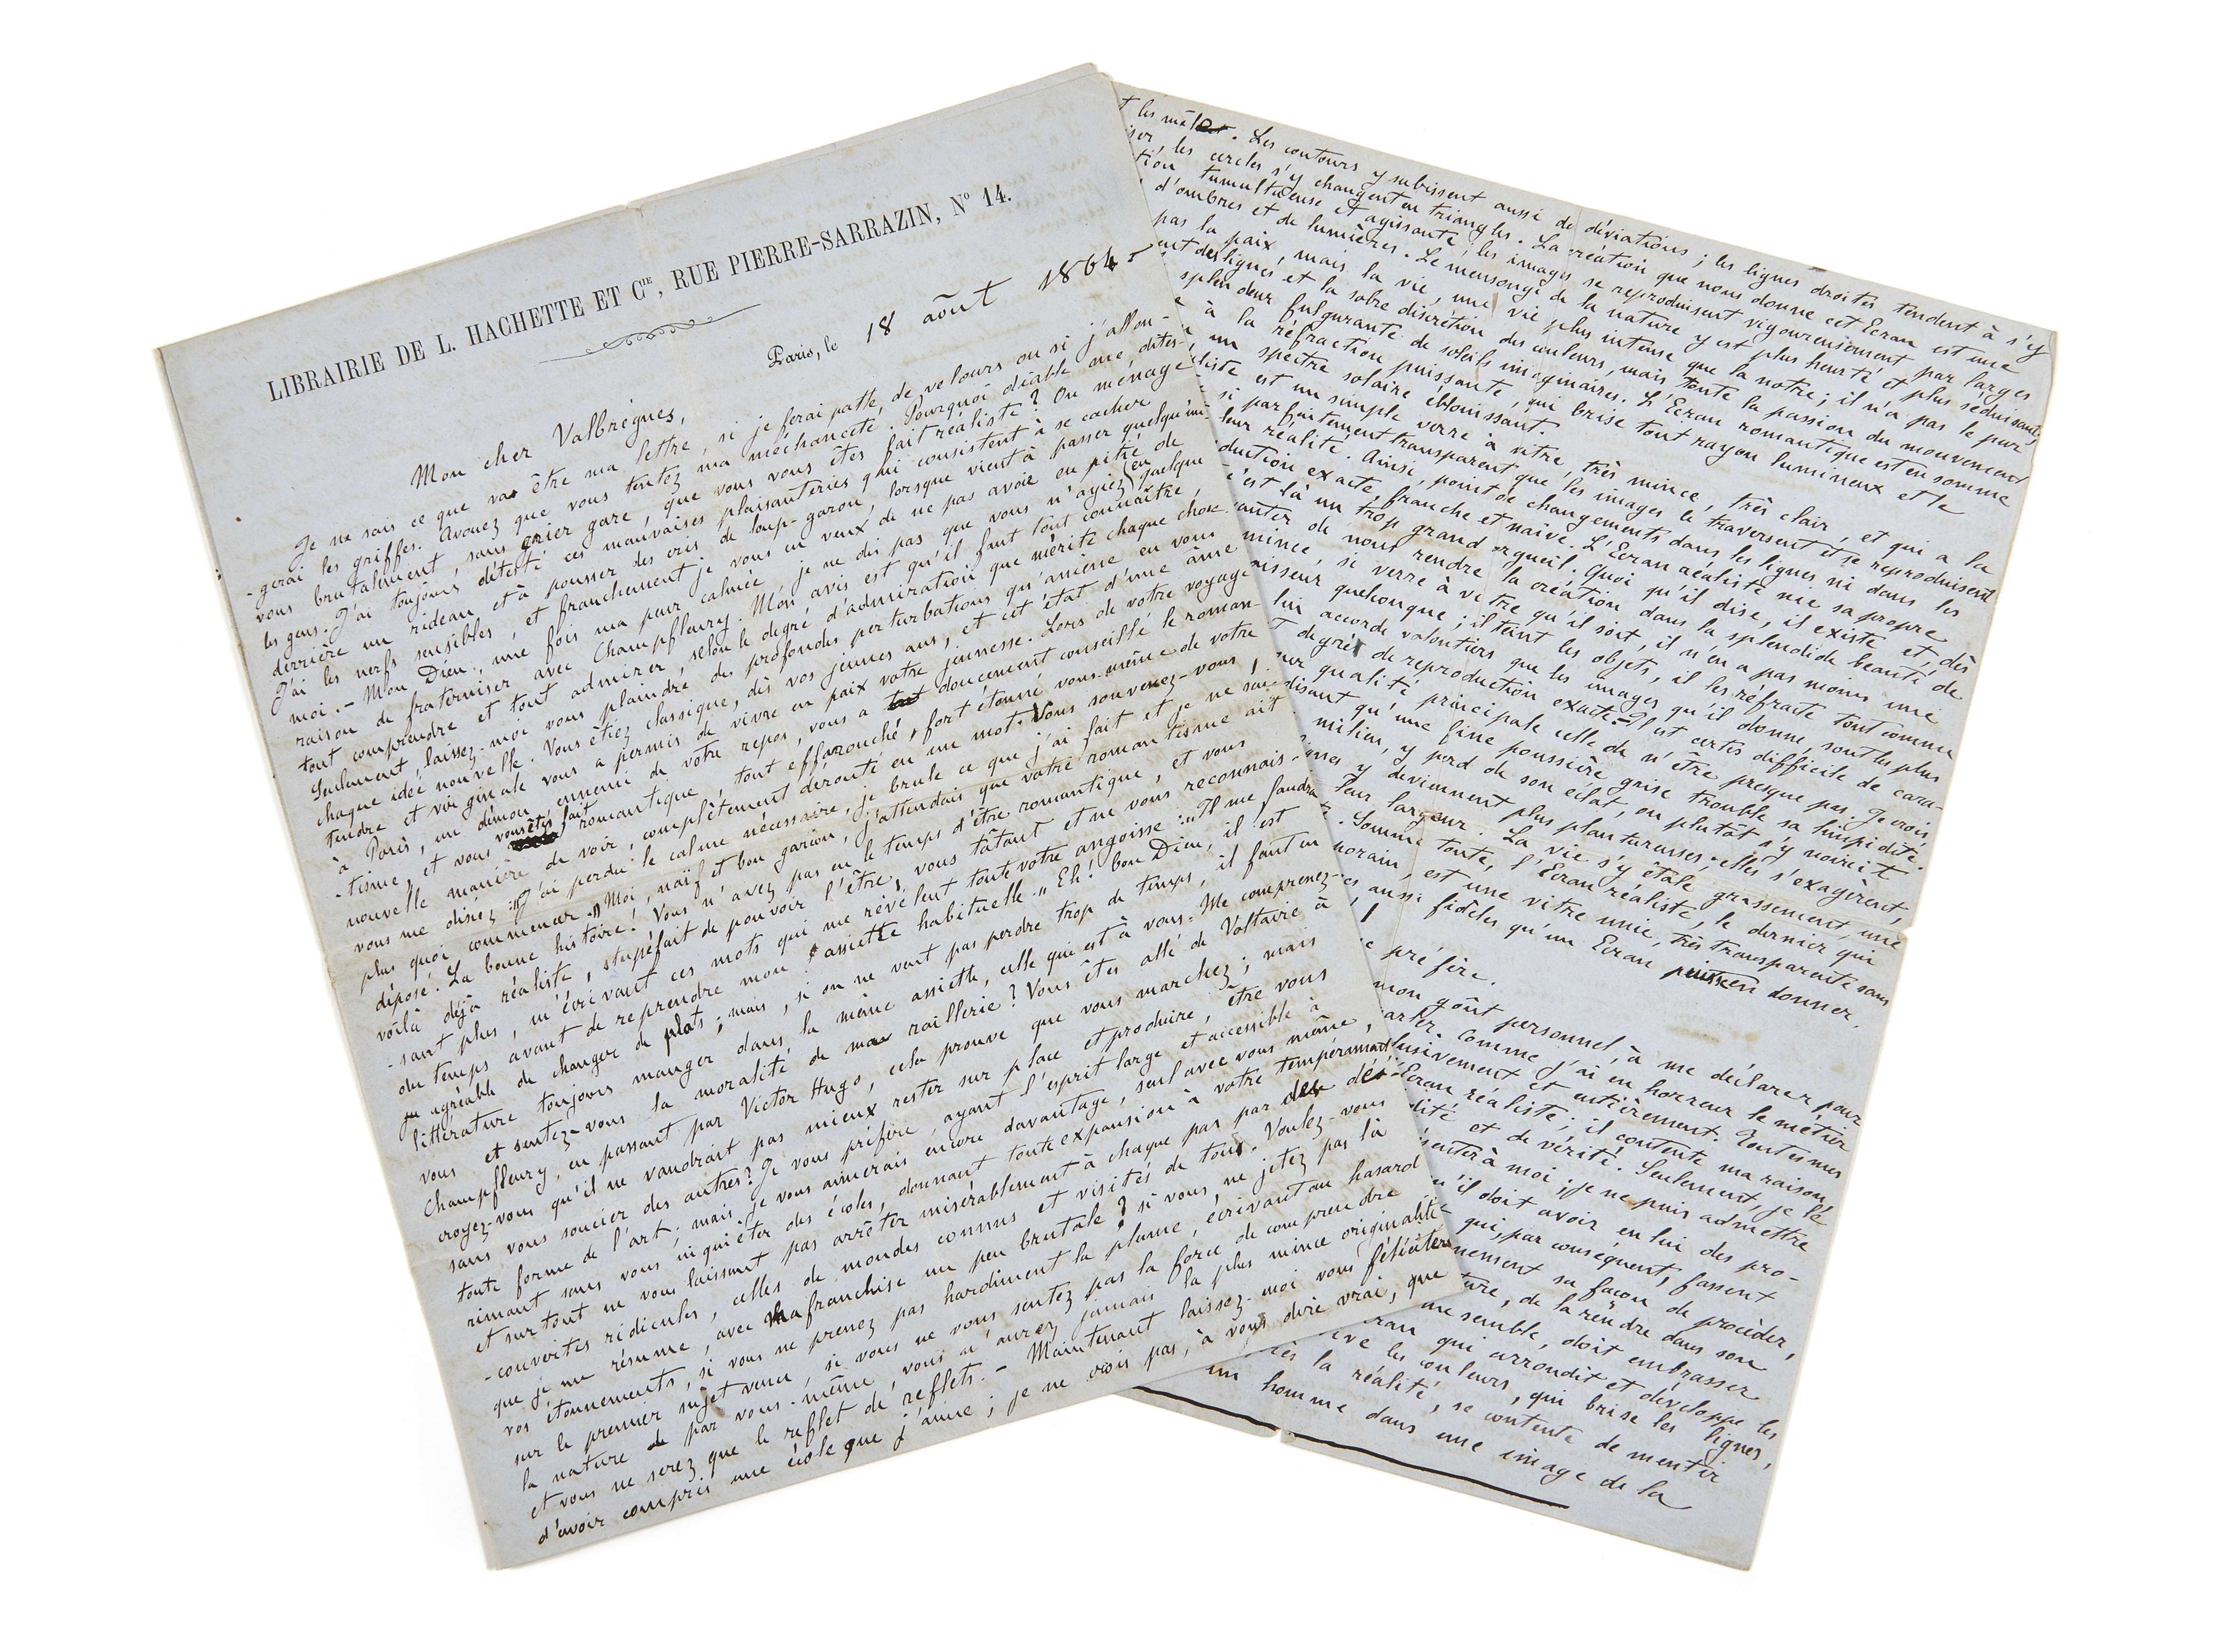 LIBRAIRIE DE L. HACHETTE ET Cie, RUE PIERRE-SARRAZIN, No 14.
Paris, le 18 août 1864.
Mon cher Valbrègues,
Je ne sais ce que va être ma lettre, si je ferai patte de velours ou si j'allon-
-gerai les griffes. Avouez que vous tentez ma méchanceté. Pourquoi diable me dites-
vous brutalement, sans crier gare, que vous vous êtes fait réaliste ? On ménage
les gens. J'ai toujours détesté ces mauvaises plaisanteries qui consistent à se cacher
derrière un rideau et à pousser des cris de loup-garou, lorsque vient à passer quelqu'un.
J'ai les nerfs sensibles, et franchement je vous en veux de ne pas avoir eu pitié de
moi. - Mon Dieu, une fois ma peur calmée, je ne dis pas que vous n'ayiez (eu quelque
raison de fraterniser avec Champfleury. Mon avis est qu'il faut tout connaître,
tout comprendre et tout admirer, selon le degré d'admiration que mérite chaque chose.
Seulement, laissez-moi vous plaindre des profondes perturbations qu'amène en vous
chaque idée nouvelle. Vous étiez classique, dès vos jeunes ans, et cet état d'une âme
tendre et virginale vous a permis de vivre en paix votre jeunesse. Lors de votre voyage
à Paris, un démon, ennemi de votre repos, vous a doucement conseillé le roman-
-tisme, et vous vous êtes fait romantique, tout effarouché, fort étonné vous-même de votre
nouvelle manière de voir, complètement dérouté en un mot. Vous souvenez-vous,
vous me disiez : "J'ai perdu le calme nécessaire, je brule ce que j'ai fait et je ne sais
plus quoi commencer." Moi, naïf et bon garçon, j'attendais que votre romantisme ait
déposé. La bonne histoire ! Vous n'avez pas eu le temps d'être romantique, et vous
voilà déjà réaliste, stupéfait de pouvoir l'être, vous tâtant et ne vous reconnais-
-sant plus, m'écrivant ces mots qui me révèlent toute votre angoisse : "Il me faudra
du temps avant de reprendre mon assiette habituelle." Eh ! bon Dieu, il est
agréable de changer de plats ; mais, si on ne veut pas perdre trop de temps, il faut en
littérature toujours manger dans la même assiette, celle qui est à vous. Me comprenez-
vous et sentez-vous la moralité de ma raillerie ? Vous êtes allé de Voltaire à
Champfleury, en passant par Victor Hugo, cela prouve que vous marchez ; mais
croyez-vous qu'il ne vaudrait pas mieux rester sur place et produire, être vous
sans vous soucier des autres ? Je vous préfère, ayant l'esprit large et accessible à
toute forme de l'art ; mais je vous aimerais encore davantage, seul avec vous même,
rimant sans vous inquiéter des écoles, donnant toute expansion à votre tempérament
et surtout ne vous laissant pas arrêter misérablement à chaque pas par des dé-
-couvertes ridicules, celles de mondes connus et visités de tous. Voulez-vous
que je me résume, avec ma franchise un peu brutale ? si vous ne jetez pas là
vos étonnements, si vous ne prenez pas hardiment la plume, écrivant au hasard
sur le premier sujet venu, si vous ne vous sentez pas la force de comprendre
la nature de par vous-même, vous n'aurez jamais la plus mince originalité
et vous ne serez que le reflet de reflets. - Maintenant laissez-moi vous féliciter
d'avoir compris une école que j'aime ; je ne vois pas, à vous dire vrai, que
t les mâles. Les contours y subissent aussi des déviations ; les lignes droites tendent à s'y
iser, les cercles s'y changent en triangles. La création que nous donne cet Ecran est une
tion tumultueuse et agissante ; les images se reproduisent vigoureusement par larges
d'ombres et de lumières. Le mensonge de la nature y est plus heurté et plus séduisant,
pas la paix, mais la vie, une vie plus intense que la notre ; il n'a pas le pur
ent des lignes et la sobre discrétion des couleurs, mais toute la passion du mouvement
splendeur fulgurante de soleils imaginaires. L'Ecran romantique est en somme
e à la réfraction puissante, qui brise tout rayon lumineux et le
un spectre solaire éblouissant
liste est un simple verre à vitre, très mince, très clair, et qui a la
si parfaitement transparent que les images le traversent et se reproduisent
leur réalité. Ainsi, point de changements dans les lignes ni dans les
duction exacte, franche et naïve. L'Ecran réaliste nie sa propre
c'est là un trop grand orgueil. Quoi qu'il dise, il existe et, dès
vanter de nous rendre la création dans la splendide beauté de
mince, si verre à vitre qu'il soit, il n'en a pas moins une
aisseur quelconque ; il teint les objets, il les réfracte tout comme
lui accorde volontiers que les images qu'il donne, sont les plus
degré de reproduction exacte. Il est certes difficile de cara-
ur qualité principale celle de n'être presque pas. Je crois
disant qu'une fine poussière grise trouble sa limpidité.
milieu, y perd de son éclat, ou plutôt s'y noircit
gnes y deviennent plus plantureuses, elles s'exagèrent,
leur largeur. La vie s'y étale grassement, une
Somme toute, l'Ecran réaliste, le dernier qui
porain, est une vitre unie, très transparente sans
es aussi fidèles qu'un Ecran puisse en donner.
préfère.
mon goût personnel, à me déclarer pour
arler. Comme j'ai en horreur le métier
lusivement et entièrement. Toutes mes
Ecran réaliste ; il contente ma raison,
dité et de vérité. Seulement, je le
senter à moi ; je ne puis admettre
u'il doit avoir en lui des pro-
qui, par conséquent, fassent
nement sa façon de procéder,
ture, de la rendre dans son
me semble, doit embrasser
ran qui arrondit et développe les
ive les couleurs, qui brise les lignes,
ès la réalité, se contente de mentir
un homme dans une image de la